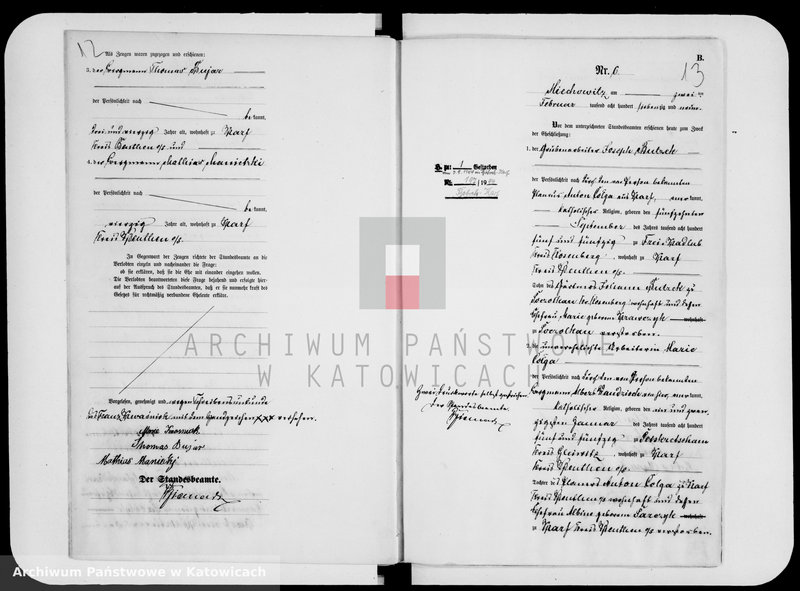 12
Als Zeugen waren zugezogen und erschienen:
3. der Bergmann Thomas Bujar
der Persönlichkeit nach
bekannt,
drei und vierzig Jahre alt, wohnhaft zu Karf
Kreis Beuthen o/s und
4. der Bergmann Mathias Maniezki
der Persönlichkeit nach
bekannt,
vierzig Jahre alt, wohnhaft zu Karf
Kreis Beuthen o/s.
In Gegenwart der Zeugen richtete der Standesbeamte an die
Verlobten einzeln und nacheinander die Frage:
ob sie erklären, daß sie die Ehe mit einander eingehen wollen.
Die Verlobten beantworteten diese Frage bejahend und erfolgte hier-
auf der Ausspruch des Standesbeamten, daß er sie nunmehr kraft des
Gesetzes für rechtmäßig verbundene Eheleute erkläre.
Vorgelesen, genehmigt und wegen Schreibensunkunde
des Franz mit dem Handzeichen xxx versehen.
Thomas Bujar
Mathias Manietzki
Der Standesbeamte.
B.
13
Nr. 6.
Miechowitz am zwei ten
Februar tausend acht hundert siebenzig und neun.
Vor dem unterzeichneten Standesbeamten erschienen heute zum Zweck
der Eheschließung:
1. der Grubenarbeiter Joseph
der Persönlichkeit nach durch den von Person bekannten
Anton Colga aus Karf, aner kannt,
katholischer Religion, geboren den fünfzehnten
September des Jahres tausend acht hundert
fünf und fünfzig zu Frei-Kadlub
Kreis Rosenberg, wohnhaft zu Karf
Kreis Beuthen o/s.
Sohn des Gärtners Johann zu
Kr. Rosenberg wohnhaft und dessen
Ehefrau Marie geborene Krawczyk wohnhaft
zu verstorben.
2. die unverehelichte Arbeiterin Marie
Colga
der Persönlichkeit nach durch den von Person bekannten
Bergmann Albert von hier, aner kannt,
katholischer Religion, geboren den ein und zwan-
zigsten Januar des Jahres tausend acht hundert
fünf und fünfzig zu
Kreis Gleiwitz, wohnhaft zu Karf
Kreis Beuthen o/s.
Tochter des Anton Colga zu Karf
Kreis Beuthen o/s wohnhaft und dessen
Ehefrau Albine geborene wohnhaft
zu Karf Kreis Beuthen o/s verstorben.
Zwei Druckworte selbst gestrichen.
Der Standesbeamte.
ARCHIWUM PAŃSTWOWE
W KATOWICACH
Archiwum Państwowe w Katowicach